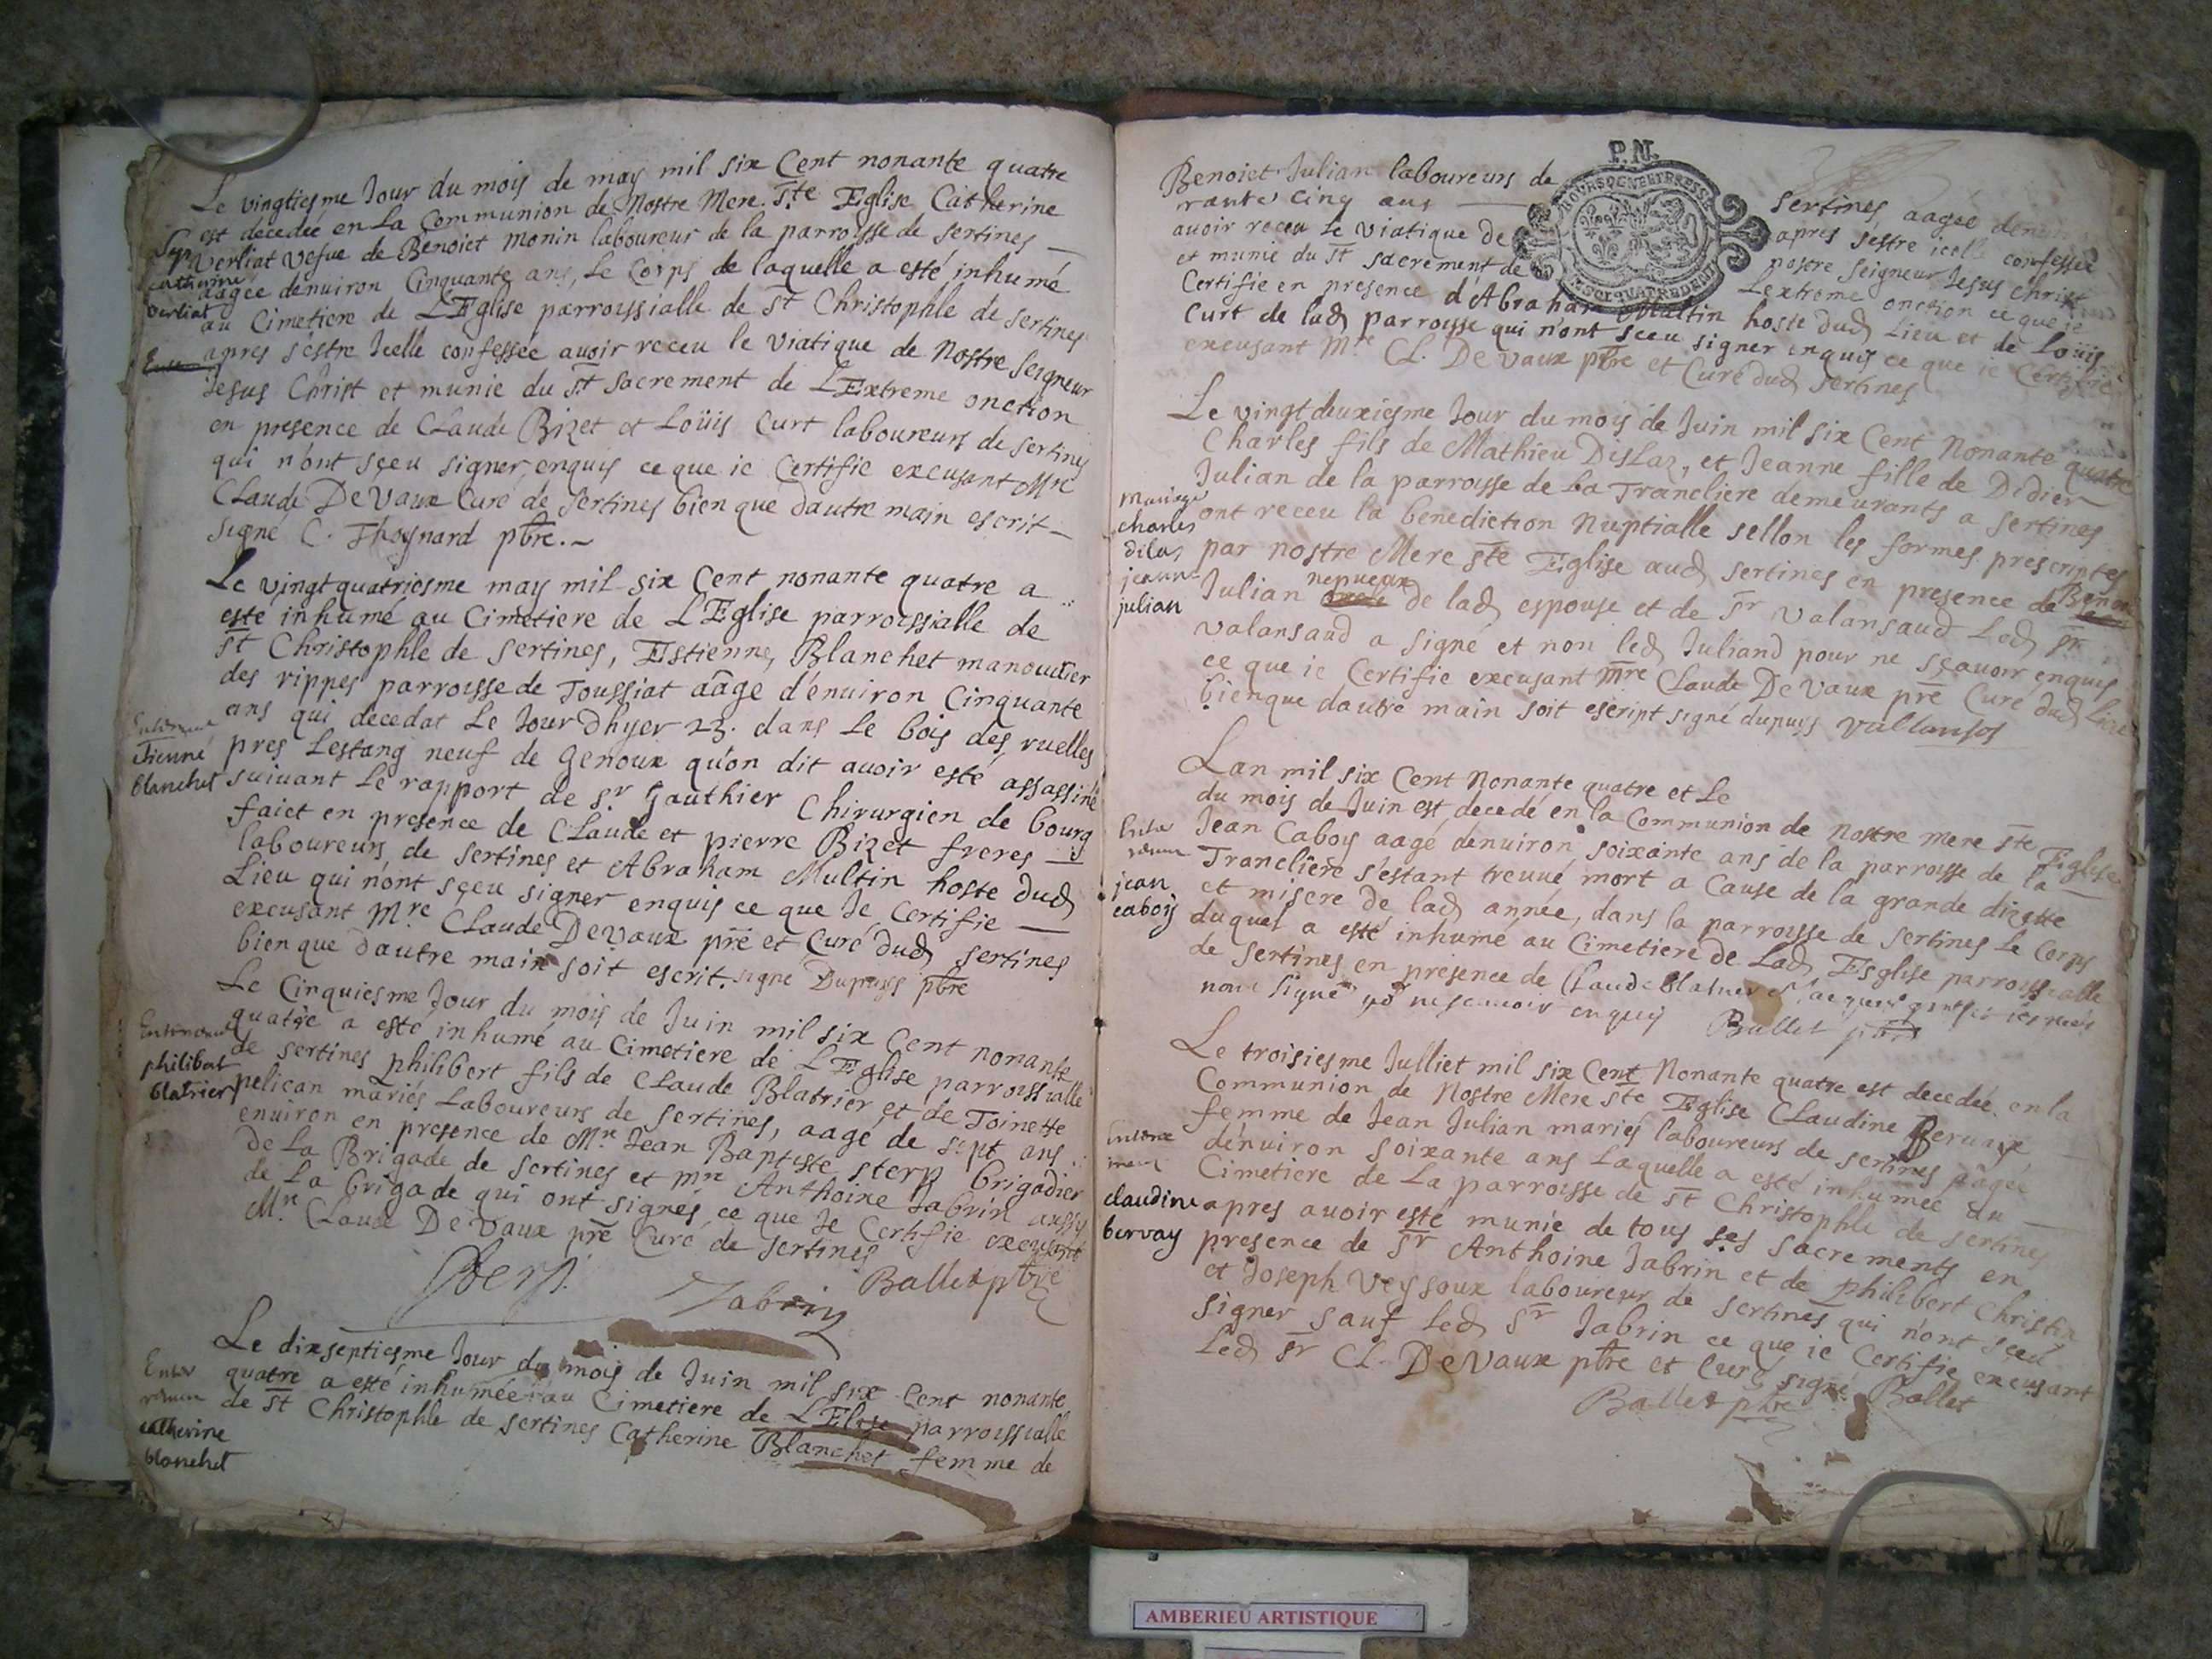 Le vingtiesme Jour du mois de may mil six Cent nonante quatre
est decedée en La Communion de Nostre Mere Ste Eglise Catherine
Verliat vesue de Benoict Monin laboureur de la parroisse de sertines
aagée denuiron Cinquante ans, Le Corps de laquelle a esté inhumé
au Cimetiere de LEglise parroissialle de St Christophle de sertines
apres sestre Icelle confessée auoir receu le viatique de Nostre Seigneur
Jesus Christ et munie du St sacrement de LExtreme onction
en presence de Claude Bizet et Loüis Curt laboureurs de sertines
qui n'ont sçeu signer, enquis ce que ie Certifie excusant Mre
Claude DeVaux Curé de sertines bien que dautre main escrit
signé C. Thoynard pbre.
catherine
verliat
Le vingtquatriesme may mil six Cent nonante quatre a
esté inhumé au Cimetiere de LEglise parroissialle de
St Christophle de sertines, Estienne Blanchet manouurier
des rippes parroisse de Toussiat aagé d'enuiron Cinquante
ans qui decedat Le Jour dhyer 23. dans Le bois des ruelles
pres Lestang neuf de Genoux qu'on dit auoir esté assassiné
suiuant Le rapport de Sr Gauthier Chirurgien de bourg
faict en presence de Claude et pierre Bizet freres
laboureurs de sertines et Abraham Multin hoste dud
Lieu qui n'ont sçeu signer enquis ce que Je Certifie
excusant Mre Claude DeVaux pre et Curé dud sertines
bien que dautre main soit escrit. signé Dupuys pbre
etienne
blanchet
Le Cinquiesme Jour du mois de Juin mil six Cent nonante
quatre a esté inhumé au Cimetiere de LEglise parroissialle
de sertines philibert fils de Claude Blatrier et de Toinette
pelican mariés Laboureurs de sertines, aagé de sept ans
enuiron en presence de Mr Jean Baptiste sterp brigadier
de La Brigade de sertines et mre Anthoine Jabrin aussy
de La brigade qui ont signés ce que Je Certifie excusant
Mre Claude DeVaux pre Curé de sertines
Sterp. Jabrin Ballet pbre
philibert
blatrier
Le dixseptiesme Jour du mois de Juin mil six Cent nonante
quatre a esté inhumée au Cimetiere de LElise parroissialle
de St Christophle de sertines Catherine Blanchet femme de
catherine
blanchet
P.N.
Benoict Julian laboureurs de sertines aagée denui
rante cinq ans apres sestre icelle confessée
auoir receu Le viatique de nostre Seigneur Jesus Christ
et munie du St sacrement de Lextreme onction ce que ie
Certifie en presence d'Abraham Multin hoste dud Lieu et de Loüis
Curt de lad parroisse qui n'ont sceu signer enquis ce que ie Certifie
excusant Mre CL. DeVaux pbre et Curé dud sertines
Le vingtdeuxiesme Jour du mois de Juin mil six Cent Nonante quatre
Charles fils de Mathieu DisLaz, et Jeanne fille de Didier
Julian de la parroisse de La Trancliere demeurants a sertines
ont receu la benediction Nuptialle sellon les formes prescriptes
par nostre Mere Ste Eglise aud sertines en presence de Benoi
Julian nepueux de lad espouse et de Sr Valansaud Led Sr
valansaud a signé et non led Juliand pour ne sçauoir enquis
ce que ie Certifie excusant mre Claude DeVaux pre Curé dud Lieu
bienque dautre main soit escript signé dupuys Vallansos
Mariage
charles
dilas
jeanne
julian
Lan mil six Cent Nonante quatre et Le
du mois de Juin est decedé en la Communion de Nostre mere Ste Eglise
Jean Caboy aagé denuiron soixante ans de la parroisse de la
Tranclière s'estant treuué mort a Cause de la grande dizette
et misere de lad année, dans la parroisse de sertines Le Corps
duquel a esté inhumé au Cimetiere de Lad Esglise parroissialle
de sertines en presence de Claude Blatrier
non signé pr ne scauoir enquis Ballet
jean
caboy
Le troisiesme Julliet mil six Cent Nonante quatre est decedée en la
Communion de Nostre Mere Ste Eglise Claudine Beruaix
femme de Jean Julian mariés laboureurs de sertines aagée
dénuiron soixante ans Laquelle a esté inhumée au
Cimetiere de La parroisse de St Christophle de sertines
apres auoir esté munie de tous ses sacrements en
presence de Sr Anthoine Jabrin et de philibert Christin
et Joseph Veyssoux laboureur de sertines qui n'ont sceu
signer sauf led Sr Jabrin ce que ie Certifie excusant
Led Sr CL. DeVaux pbre et Curé signé Ballet
Ballet pbre
claudine
bervay
AMBERIEU ARTISTIQUE